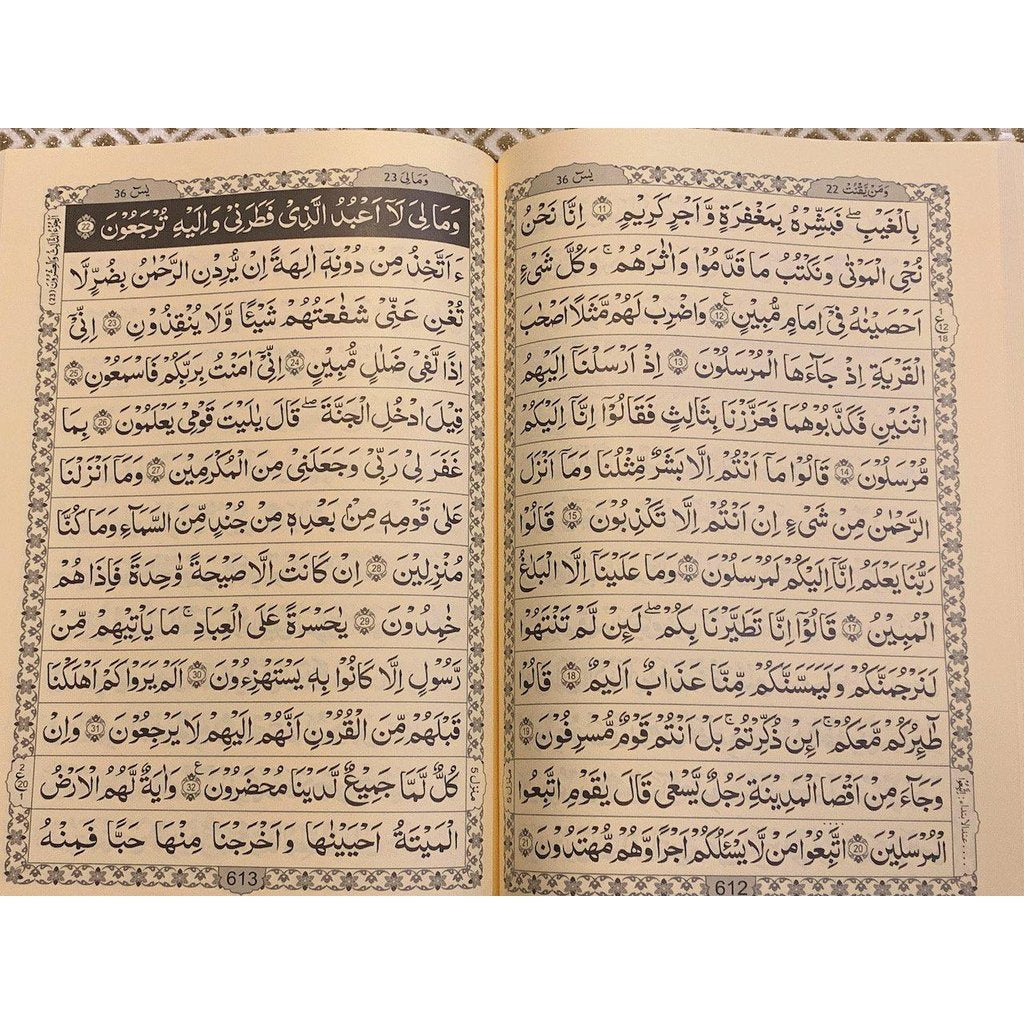 وَمَنْ يَّقْنُتْ 22
يٰسٓ 36
بِالْغَيْبِ ۖ فَبَشِّرْهُ بِمَغْفِرَةٍ وَّاَجْرٍ كَرِيْمٍ 11 اِنَّا نَحْنُ
نُحْيِ الْمَوْتٰى وَنَكْتُبُ مَا قَدَّمُوْا وَاٰثَارَهُمْ ۚ وَكُلَّ شَيْءٍ
اَحْصَيْنٰهُ فِيْٓ اِمَامٍ مُّبِيْنٍ 12 وَاضْرِبْ لَهُمْ مَّثَلًا اَصْحٰبَ
الْقَرْيَةِ اِذْ جَآءَهَا الْمُرْسَلُوْنَ 13 اِذْ اَرْسَلْنَآ اِلَيْهِمُ
اثْنَيْنِ فَكَذَّبُوْهُمَا فَعَزَّزْنَا بِثَالِثٍ فَقَالُوْٓا اِنَّآ اِلَيْكُمْ
مُّرْسَلُوْنَ 14 قَالُوْا مَآ اَنْتُمْ اِلَّا بَشَرٌ مِّثْلُنَا وَمَآ اَنْزَلَ
الرَّحْمٰنُ مِنْ شَيْءٍ اِنْ اَنْتُمْ اِلَّا تَكْذِبُوْنَ 15 قَالُوْا
رَبُّنَا يَعْلَمُ اِنَّآ اِلَيْكُمْ لَمُرْسَلُوْنَ 16 وَمَا عَلَيْنَآ اِلَّا الْبَلٰغُ
الْمُبِيْنُ 17 قَالُوْٓا اِنَّا تَطَيَّرْنَا بِكُمْ ۖ لَئِنْ لَّمْ تَنْتَهُوْا
لَنَرْجُمَنَّكُمْ وَلَيَمَسَّنَّكُمْ مِّنَّا عَذَابٌ اَلِيْمٌ 18 قَالُوْا
طَآئِرُكُمْ مَّعَكُمْ ۚ اَئِنْ ذُكِّرْتُمْ ۚ بَلْ اَنْتُمْ قَوْمٌ مُّسْرِفُوْنَ 19
وَجَآءَ مِنْ اَقْصَا الْمَدِيْنَةِ رَجُلٌ يَّسْعٰى قَالَ يٰقَوْمِ اتَّبِعُوا
الْمُرْسَلِيْنَ 20 اتَّبِعُوْا مَنْ لَّا يَسْـَٔلُكُمْ اَجْرًا وَّهُمْ مُّهْتَدُوْنَ 21
ع
1
12
18
612
وَمَالِيَ 23
يٰسٓ 36
وَمَا لِيَ لَآ اَعْبُدُ الَّذِيْ فَطَرَنِيْ وَاِلَيْهِ تُرْجَعُوْنَ 22
ءَاَتَّخِذُ مِنْ دُوْنِهٖٓ اٰلِهَةً اِنْ يُّرِدْنِ الرَّحْمٰنُ بِضُرٍّ لَّا
تُغْنِ عَنِّيْ شَفٰعَتُهُمْ شَيْـًٔا وَّلَا يُنْقِذُوْنِ 23 اِنِّيْٓ
اِذًا لَّفِيْ ضَلٰلٍ مُّبِيْنٍ 24 اِنِّيْٓ اٰمَنْتُ بِرَبِّكُمْ فَاسْمَعُوْنِ 25
قِيْلَ ادْخُلِ الْجَنَّةَ ۖ قَالَ يٰلَيْتَ قَوْمِيْ يَعْلَمُوْنَ 26 بِمَا
غَفَرَ لِيْ رَبِّيْ وَجَعَلَنِيْ مِنَ الْمُكْرَمِيْنَ 27 وَمَآ اَنْزَلْنَا
عَلٰى قَوْمِهٖ مِنْۢ بَعْدِهٖ مِنْ جُنْدٍ مِّنَ السَّمَآءِ وَمَا كُنَّا
مُنْزِلِيْنَ 28 اِنْ كَانَتْ اِلَّا صَيْحَةً وَّاحِدَةً فَاِذَا هُمْ
خٰمِدُوْنَ 29 يٰحَسْرَةً عَلَى الْعِبَادِ ۚ مَا يَاْتِيْهِمْ مِّنْ
رَّسُوْلٍ اِلَّا كَانُوْا بِهٖ يَسْتَهْزِءُوْنَ 30 اَلَمْ يَرَوْا كَمْ اَهْلَكْنَا
قَبْلَهُمْ مِّنَ الْقُرُوْنِ اَنَّهُمْ اِلَيْهِمْ لَا يَرْجِعُوْنَ 31 وَاِنْ
كُلٌّ لَّمَّا جَمِيْعٌ لَّدَيْنَا مُحْضَرُوْنَ 32 وَاٰيَةٌ لَّهُمُ الْاَرْضُ
الْمَيْتَةُ اَحْيَيْنٰهَا وَاَخْرَجْنَا مِنْهَا حَبًّا فَمِنْهُ
منزل ٥
ع
2
20
1
613